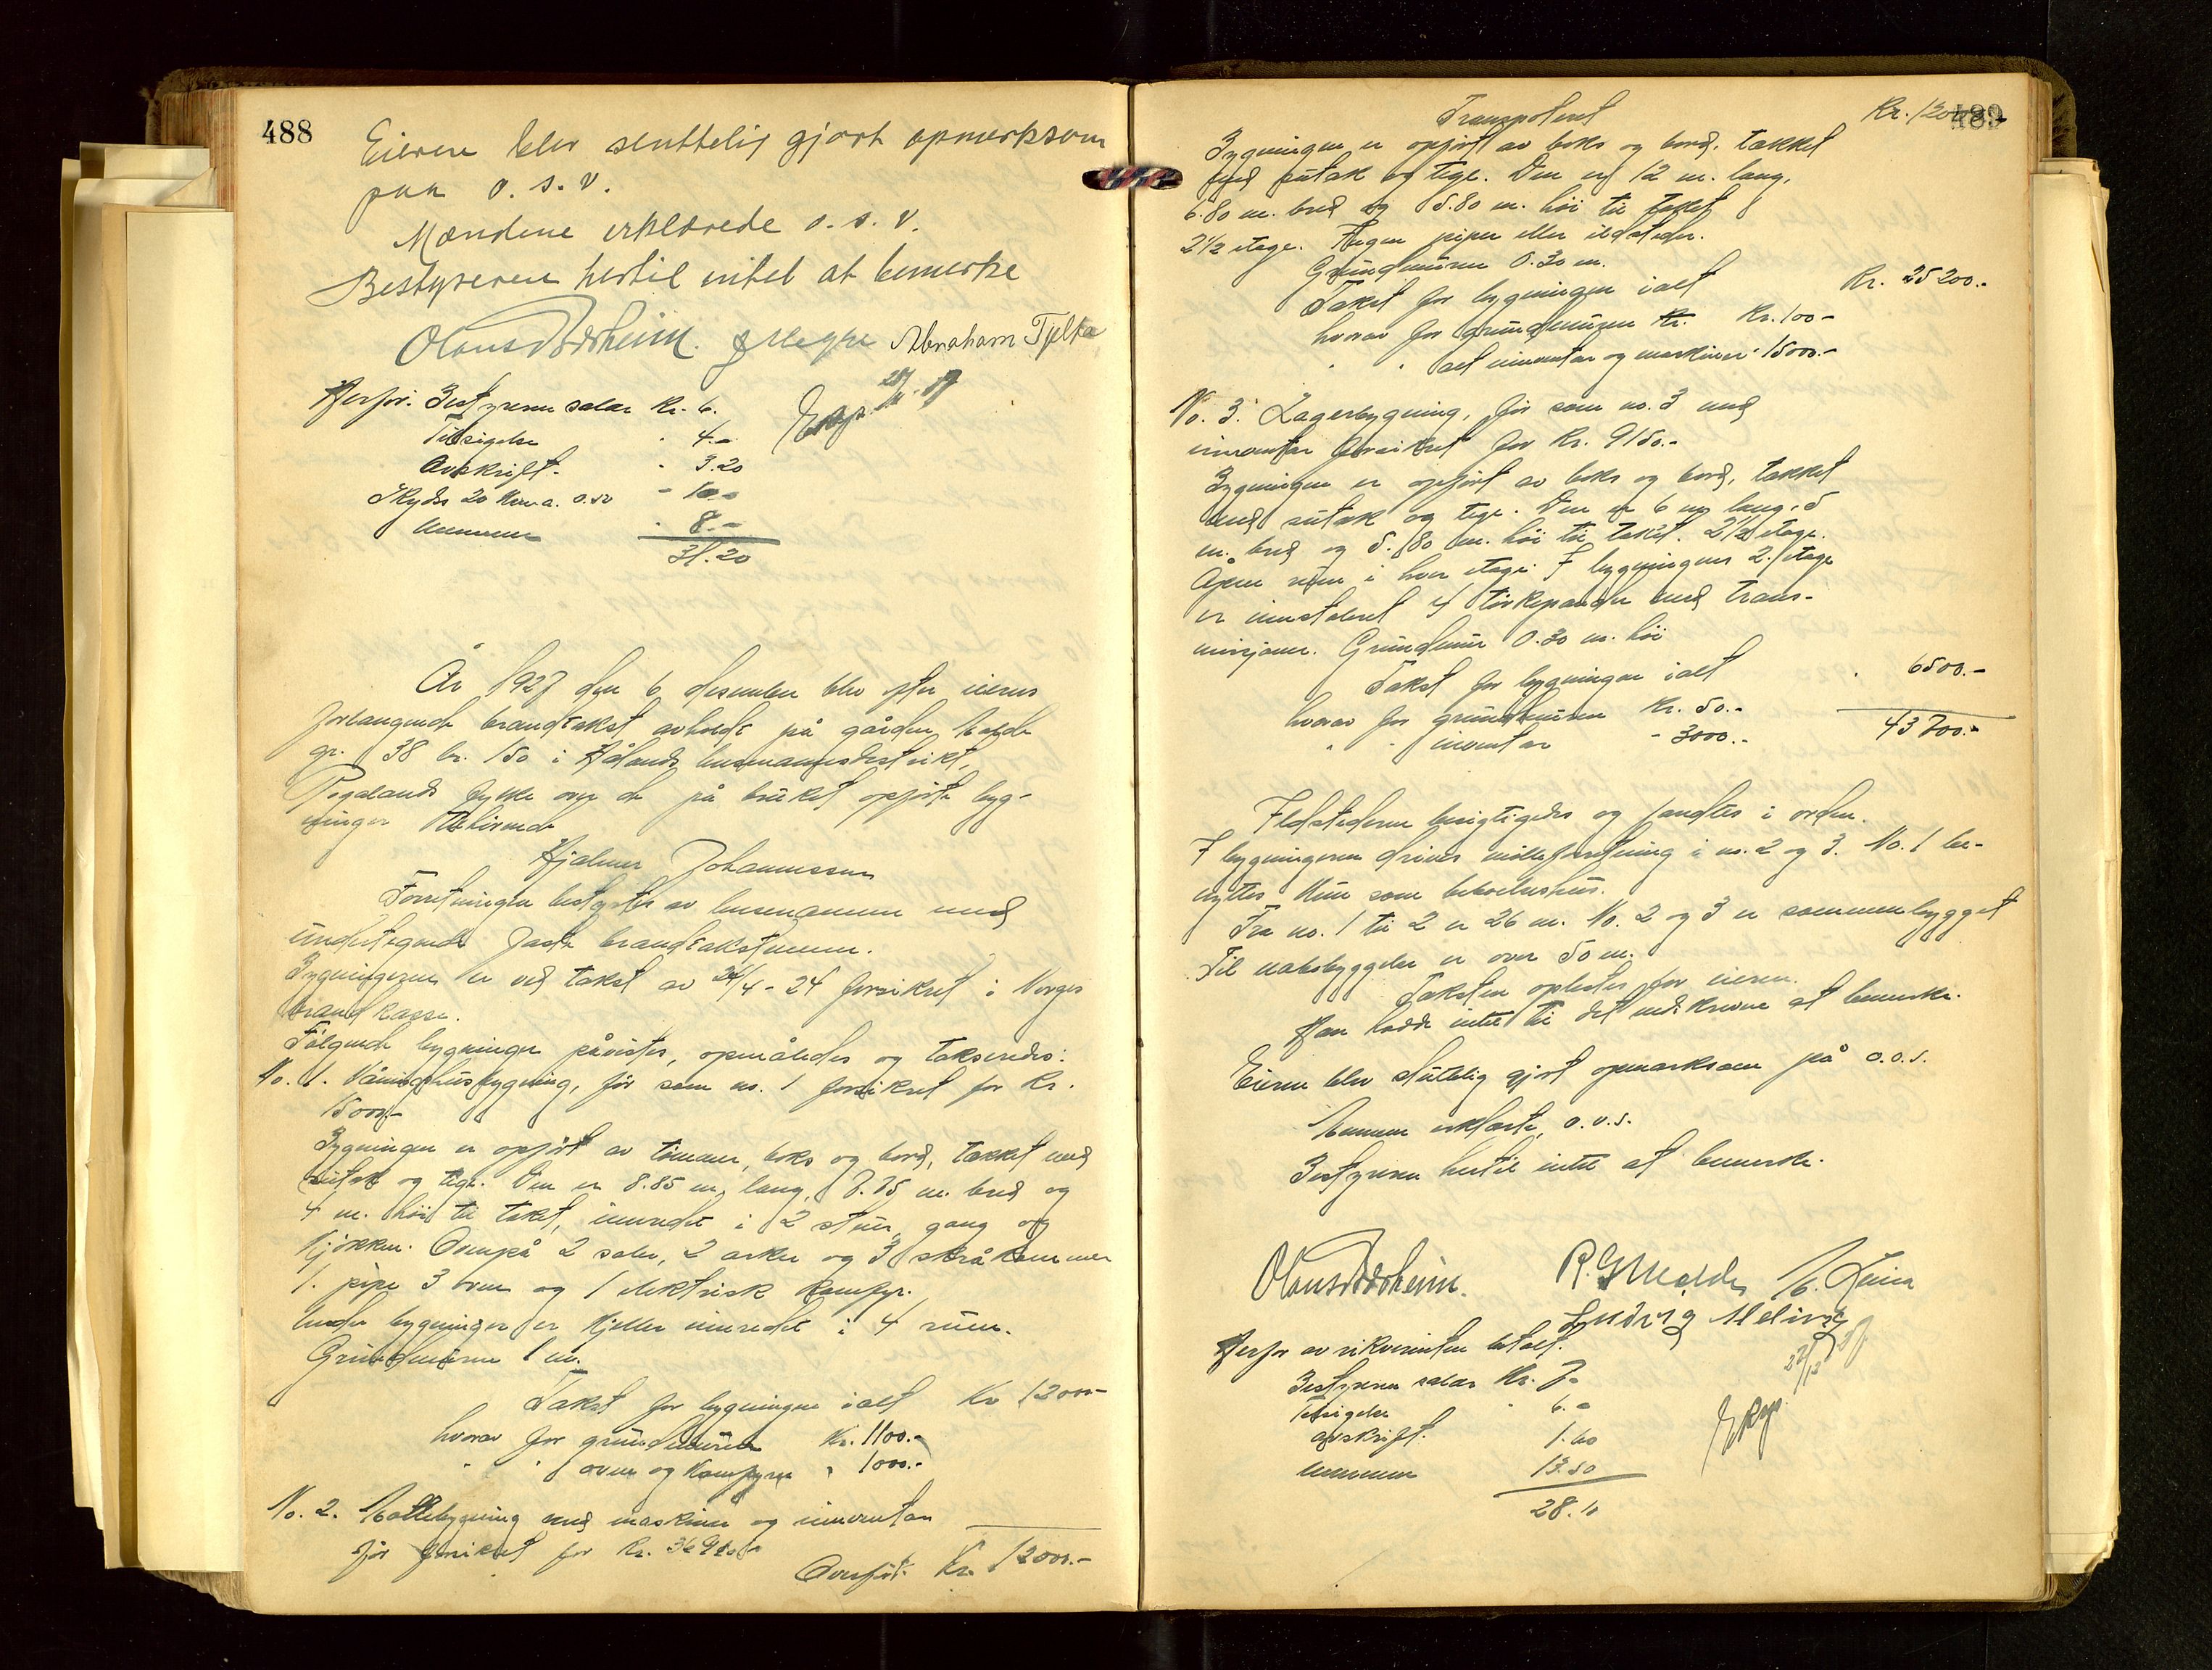 488
Eieren blev sluttelig gjort opmerksom
paa o. s. v.
Mændene erklærede o. s. v.
Bestyreren hertil intet at bemerke
Olaus Abraham Tjelta
Herfor: Bestyreren salær Kr. 6.
Tilsigelse " 4.-
Avskrift. " 3.20
Skyds 20 km a. 0.50 - 10.-
Mennene " 8.-
31.20
År 1927 den 6 desember blev efter eierens
forlangende brandtakst avholdt på gården Malde
gr. 38 br. 150 i Hålands lensmannsdistrikt,
Rogalands fylke over de på bruket opførte byg-
ninger tilhørende
Hjalmar Johannessen
Forretningen bestyrtes av lensmannen med
undertegnede faste brandtakstmenn.
Bygningerne er ved takst av 24/4 - 24 forsikret i Norges
brandkasse.
Følgende bygninger påvistes, opmåledes og takseredes:
No. 1. Våningshusbygning, før som no. 1 forsikret for Kr.
15000.-
Bygningen er opført av tømmer, boks og bord, tækket med
sutak og tegl. Den er 8.85 m. lang, 7.75 m. bred og
4 m. høi til taket, innredet i 2 stuer, gang og
kjøkken. Ovenpå 2 saler, 2 arker og 3 skråkammer
1. pipe 3 ovner og 1 elektrisk komfyr.
Under bygningen er kjeller innredet i 4 rum.
Grundmuren 1 m.
Takst for bygningen ialt Kr 12000-
hvorav for grundmuren Kr. 1100.-
" " ovner og komfyren " 1000.-
No. 2. Møllebygning med maskiner og inventar
før forsikret for Kr.
Overført Kr. 12000.-
489
Transportert Kr. 12000.-
Bygningen er opført av boks og bord, tækket
med sutak og tegl. Den er 12 m. lang,
6.80 m. bred og 5.80 m. høi til taket
2 1/2 etage. Ingen piper eller ildsteder.
Grundmuren 0.30 m.
Takst for bygningen ialt Kr. 25200.-
hvorav for grundmuren Kr. 100-
" " alt inventar og maskiner " 15000.-
No. 3. Lagerbygning, før som no. 3 med
inventar forsikret for Kr. 9150.-
Bygningen er opført av boks og bord, tækket
med sutak og tegl. Den er 6 m lang, 5
m. bred og 5.80 m. høi til taket. 2 1/2 etage.
Åpne rum i hver etage. I bygningens 2. etage
er innstaleret 4 tørkepander med trans-
misjoner. Grundmur 0.30 m. høi
Takst for bygningen ialt " 6500.-
hvorav for grundmuren Kr. 50.-
" " inventar - 3000.- 43700.-
Ildstederne besigtigedes og fandtes i orden.
I bygningerne drives mølleforretning i no. 2 og 3. No. 1 be-
nyttes kun som beboelseshus.
Fra no. 1 til 2 er 26 m. No. 2 og 3 er sammenbygget
Til nabobyggelse er over 50 m.
Taksten oplestes for eieren.
Han hadde intet til det nedskrevne at bemerke.
Eieren blev sluttelig gjort opmerksom på o.s.v.
Mennene erklærte, o.s.v.
Bestyreren hertil intet at bemerke.
Olaus R. G. Malde
Ludvig Meling
Herfor av rekvirenten betalt.
Bestyreren salær Kr. 7.-
Tilsigelse " 6.-
avskrift. 1.60
Mennene 13.50
28.10